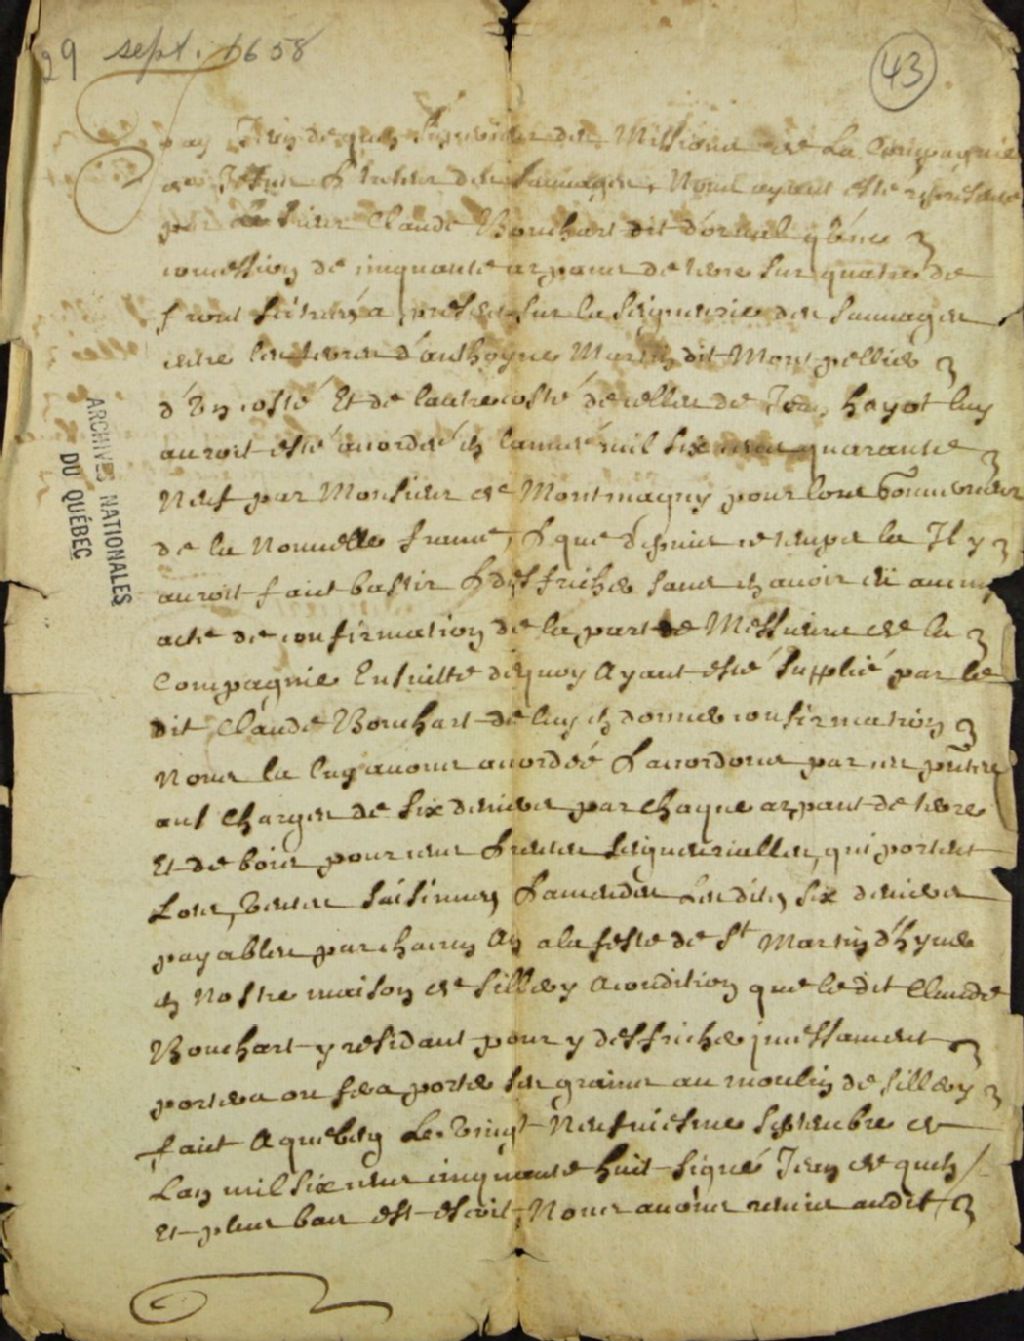 29 sept. 1658
43
Jean de quen Superieur des Missions de La Compagnie
de Jesus & tuteur des sauvages, Nous ayant esté represente
par Le Sieur Claude Bouchart dit dorval qu'une
concession de cinquante arpans de terre sur quatre de
front scituéz a present sur la seigneurie des sauvages
entre les terres d'anthoyne Martin dit Montpellier
d'Un costé Et de lautre costé de celles de Jean hayot luy
auroit esté acordée en lannée mil six cens quarante
Neuf par Monsieur de Montmagny pour lors Gouverneur
de la Nouvelle france, & que depuis ce temps la Il y
auroit faict bastir & deffricher sans en avoir eü aucun
acte de confirmation de la part de Messieurs de la
Compagnie Ensuitte dequoy Ayant esté supplié par le
dit Claude Bouchart de luy en donner confirmation
Nous la luy avons acordéé & acordons par ces pñtes
aux charges de six deniers par chaque arpant de terre
Et de bois pour cens & rentes seigneurialles, qui portent
Lots, ventes saisinnes & amendes Lesdits six deniers
payables par chacun An a la feste de St Martin d'hyver
en Nostre maison de sillery A condition que le dit Claude
Bouchart y residant pour y deffricher incessament
portera ou fera porter ses grains au moulin de sillery
faict A quebecq Le vingt Neufviesme septembre de
Lan mil six cens cinquante huit signé Jean de quen /
Et plus bas est escrit, Nous avons remis audit
ARCHIVES NATIONALES
DU QUÉBEC